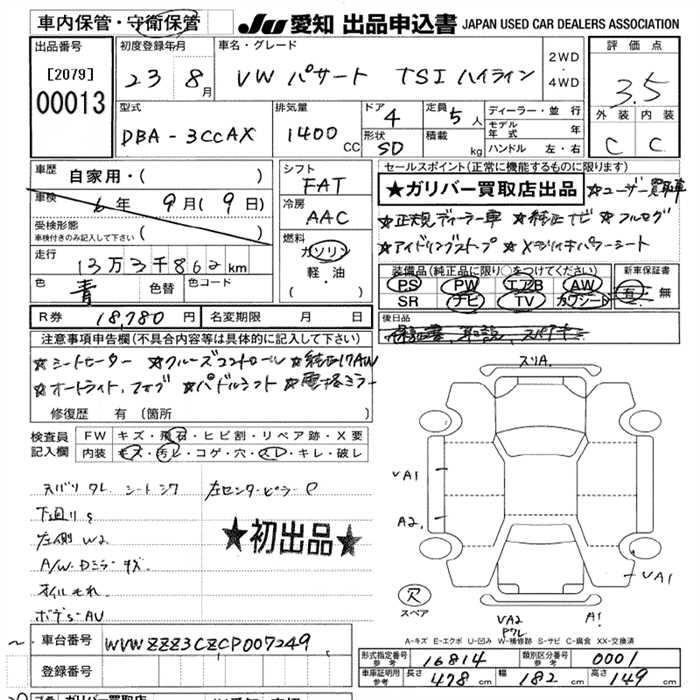 車内保管・守衛保管
JU 愛知 出品申込書 JAPAN USED CAR DEALERS ASSOCIATION
出品番号
[2079]
00013
初度登録年月
23 8月
車名・グレード
VW パサート TSI ハイライン
2WD
・
4WD
評価点
3.5
外装 内装
C C
型式
DBA-3CCAX
排気量
1400 CC
ドア 4
形状 SD
定員 5人
積載 kg
ディーラー・並行
モデル年式 年
ハンドル 左・右
車歴
自家用・( )
車検
6年 9月(9日)
受検形態
車検付きのみ記入して下さい ( )
走行
13万3千862km
色 青 色替 色コード
シフト
FAT
冷房
AAC
燃料
ガソリン
軽・油
セールスポイント(正常に機能するものに限ります)
★ガリバー買取店出品 ★ユーザー買取車
★正規ディーラー車 ★純正ナビ ★フルセグ
★アイドリングストップ
装備品(純正品に限り○をつけてください)
PS PW エアB AW
SR ナビ TV カワシート
新車保証書
有・無
後日品
保証書、取説、スペアキー
R券 18,780円 名変期限 月 日
注意事項申告欄(不具合内容等は具体的に記入して下さい)
★シートヒーター ★クルーズコントロール ★純正17AW
★オートライト、フォグ ★パドルシフト ★電格ミラー
修復歴 有(箇所 )
検査員記入欄
FW キズ・飛石・ヒビ割・リペア跡・X要
内装 キズ・汚レ・コゲ・穴・スレ・キレ・破レ
スリA.
シートシワ 左センターピラーP
下廻りS
左側W2
A/W・Dミラーキズ
オイルモレ
★初出品★
VA1
A2
VA1
VA2
A1
穴
スペア
A-キズ E-エクボ U-凹み W-補修跡 S-サビ C-腐食 XX-交換済
車台番号 WVWZZZ3CZCP007249
登録番号
形式指定番号 参考 16814 類別区分番号 参考 0001
車庫証明用 参考 長さ 478cm 幅 182cm 高さ 149cm
ガリバー買取店